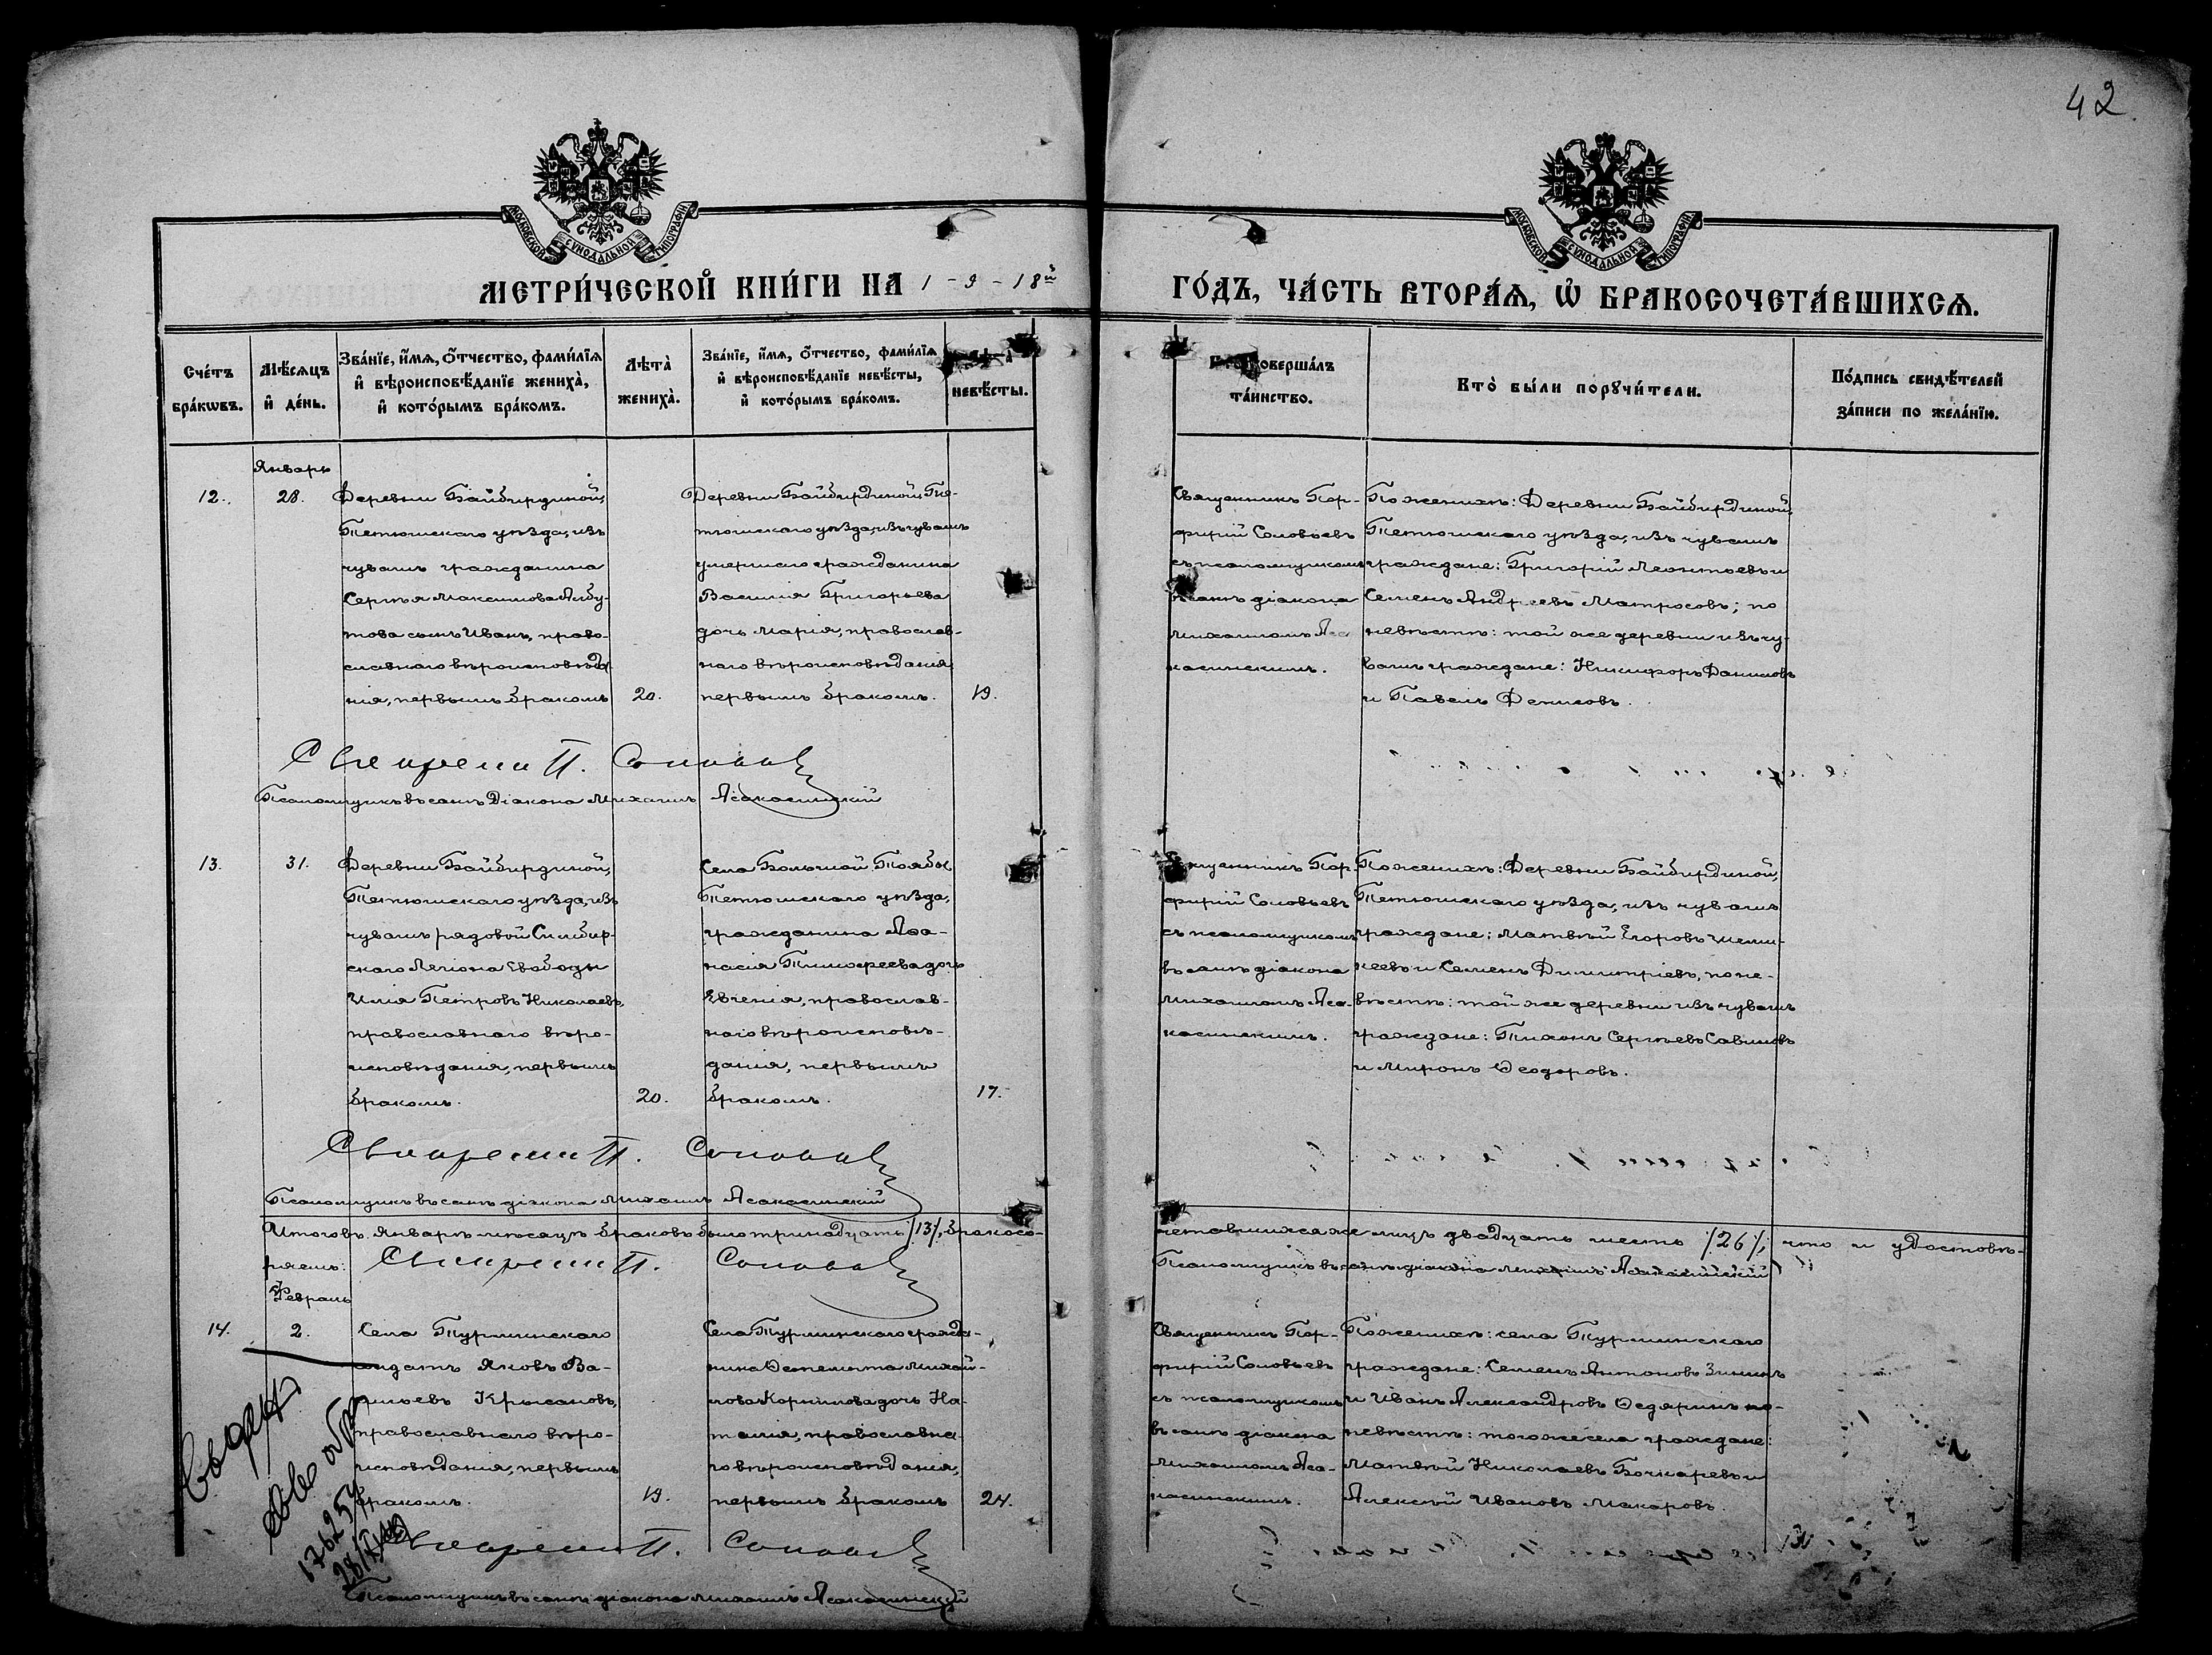 42.
МОСКОВСКОЙ СѴНОДАЛЬНОЙ ТИПОГРАФІИ
МОСКОВСКОЙ СѴНОДАЛЬНОЙ ТИПОГРАФІИ
МЕТРИ́ЧЕСКОЙ КНИ́ГИ НА 1-9-18й
ГО́ДЪ, ЧА́СТЬ ВТОРА́Ѧ, Ѡ҆ БРАКОСОЧЕТА́ВШИХСѦ.
Сче́тъ
бра́кѡвъ.
Мѣ́сѧцъ
и҆ де́нь.
Зва́нїе, и҆́мѧ, ѻ҆́тчество, фамѝлїѧ
и҆ вѣроисповѣ́данїе женихà,
и҆ кото́рымъ бра́комъ.
Лѣтà
женихà.
Зва́нїе, и҆́мѧ, ѻ҆́тчество, фамѝлїѧ
и҆ вѣроисповѣ́данїе невѣ́сты,
и҆ кото́рымъ бра́комъ.
невѣ́сты.
соверша́лъ
та́инство.
Ктò бы́ли порꙋчи́тели.
По́дпись свидѣ́телей
за́писи по жела́нїю.
Январь
12.
28.
Деревни Байбирдиной,
Тетюшскаго уѣзда, изъ
чувашъ гражданина
Сергѣя Максимова Албу-
това сынъ Иванъ, право-
славнаго вѣроисповѣда
нія, первымъ бракомъ
20.
Деревни Байбирдиной, Те-
тюшскаго уѣзда, изъ чувашъ
умершаго гражданина
Василія Григорьева
дочь Марія, православ-
наго вѣроисповѣданія
первымъ бракомъ.
19.
Священникъ Пор-
фирій Соловьевъ
съ псаломщикомъ
санѣ діакона
Михаиломъ Аса
касинскимъ.
По женихѣ: Деревни Байбирдиной,
Тетюшскаго уѣзда, изъ чувашъ
граждане: Григорій Леонтьевъ и
Семенъ Андреевъ Матросовъ; по
невѣстѣ: той же деревни изъ чу-
вашъ граждане: Никифоръ Даниловъ
и Павелъ Денисовъ.
Священникъ П. Соловьевъ
Псаломщикъ въ санѣ Діакона Михаилъ Асакасинскій
13.
31.
Деревни Байбирдиной,
Тетюшскаго уѣзда, изъ
чувашъ рядовой Симбир-
скаго Легіона Свободы
Илія Петровъ Николаевъ,
православнаго вѣро-
исповѣданія, первымъ
бракомъ.
20.
Села Большой Таябы
Тетюшскаго уѣзда,
гражданина Аѳа-
насія Тимофеева дочь
Евгенія, православ-
наго вѣроисповѣ-
данія, первымъ
бракомъ.
17.
Священникъ Пор-
фирій Соловьевъ
съ псаломщикомъ
въ санѣ діакона
Михаиломъ Аса-
касинскимъ.
По женихѣ: Деревни Байбирдиной,
Тетюшскаго уѣзда, изъ чувашъ
граждане: Матвѣй Егоровъ
и Семенъ Димитріевъ, по не-
вѣстѣ: той же деревни изъ чувашъ
граждане: Тихонъ Сергѣевъ Савиновъ
и Миронъ Ѳеодоровъ.
Священникъ П. Соловьевъ
Псаломщикъ въ санѣ діакона Михаилъ Асакасинскій
Итого въ Январѣ мѣсяцѣ браковъ было тринадцать /13/, бракосо-
четавшихся же лицъ двадцать шесть /26/, что и удостовѣ-
ряемъ: Священникъ П. Соловьевъ
Псаломщикъ въ санѣ діакона Михаилъ Асакасинскій
Февраль
14.
2.
Села Турминскаго
солдатъ Яковъ Ва-
сильевъ Крысановъ,
православнаго вѣро-
исповѣданія, первымъ
бракомъ.
19.
Села Турминскаго гражда-
нина Ѳеактиста Михай-
лова Корнилова дочь На-
талія, православна-
го вѣроисповѣданія,
первымъ бракомъ
24.
Священникъ Пор-
фирій Соловьевъ
съ псаломщикомъ
въ санѣ діакона
Михаиломъ Аса-
касинскимъ.
По женихѣ: села Турминскаго
граждане: Семенъ Антоновъ Зиминъ
и Иванъ Александровъ Ѳедяринъ по-
невѣстѣ: того же села граждане:
Матвѣй Николаевъ Бочкаревъ и
Алексѣй Ивановъ Макаровъ.
Священникъ П. Соловьевъ
Псаломщикъ въ санѣ діакона Михаилъ Асакасинскій